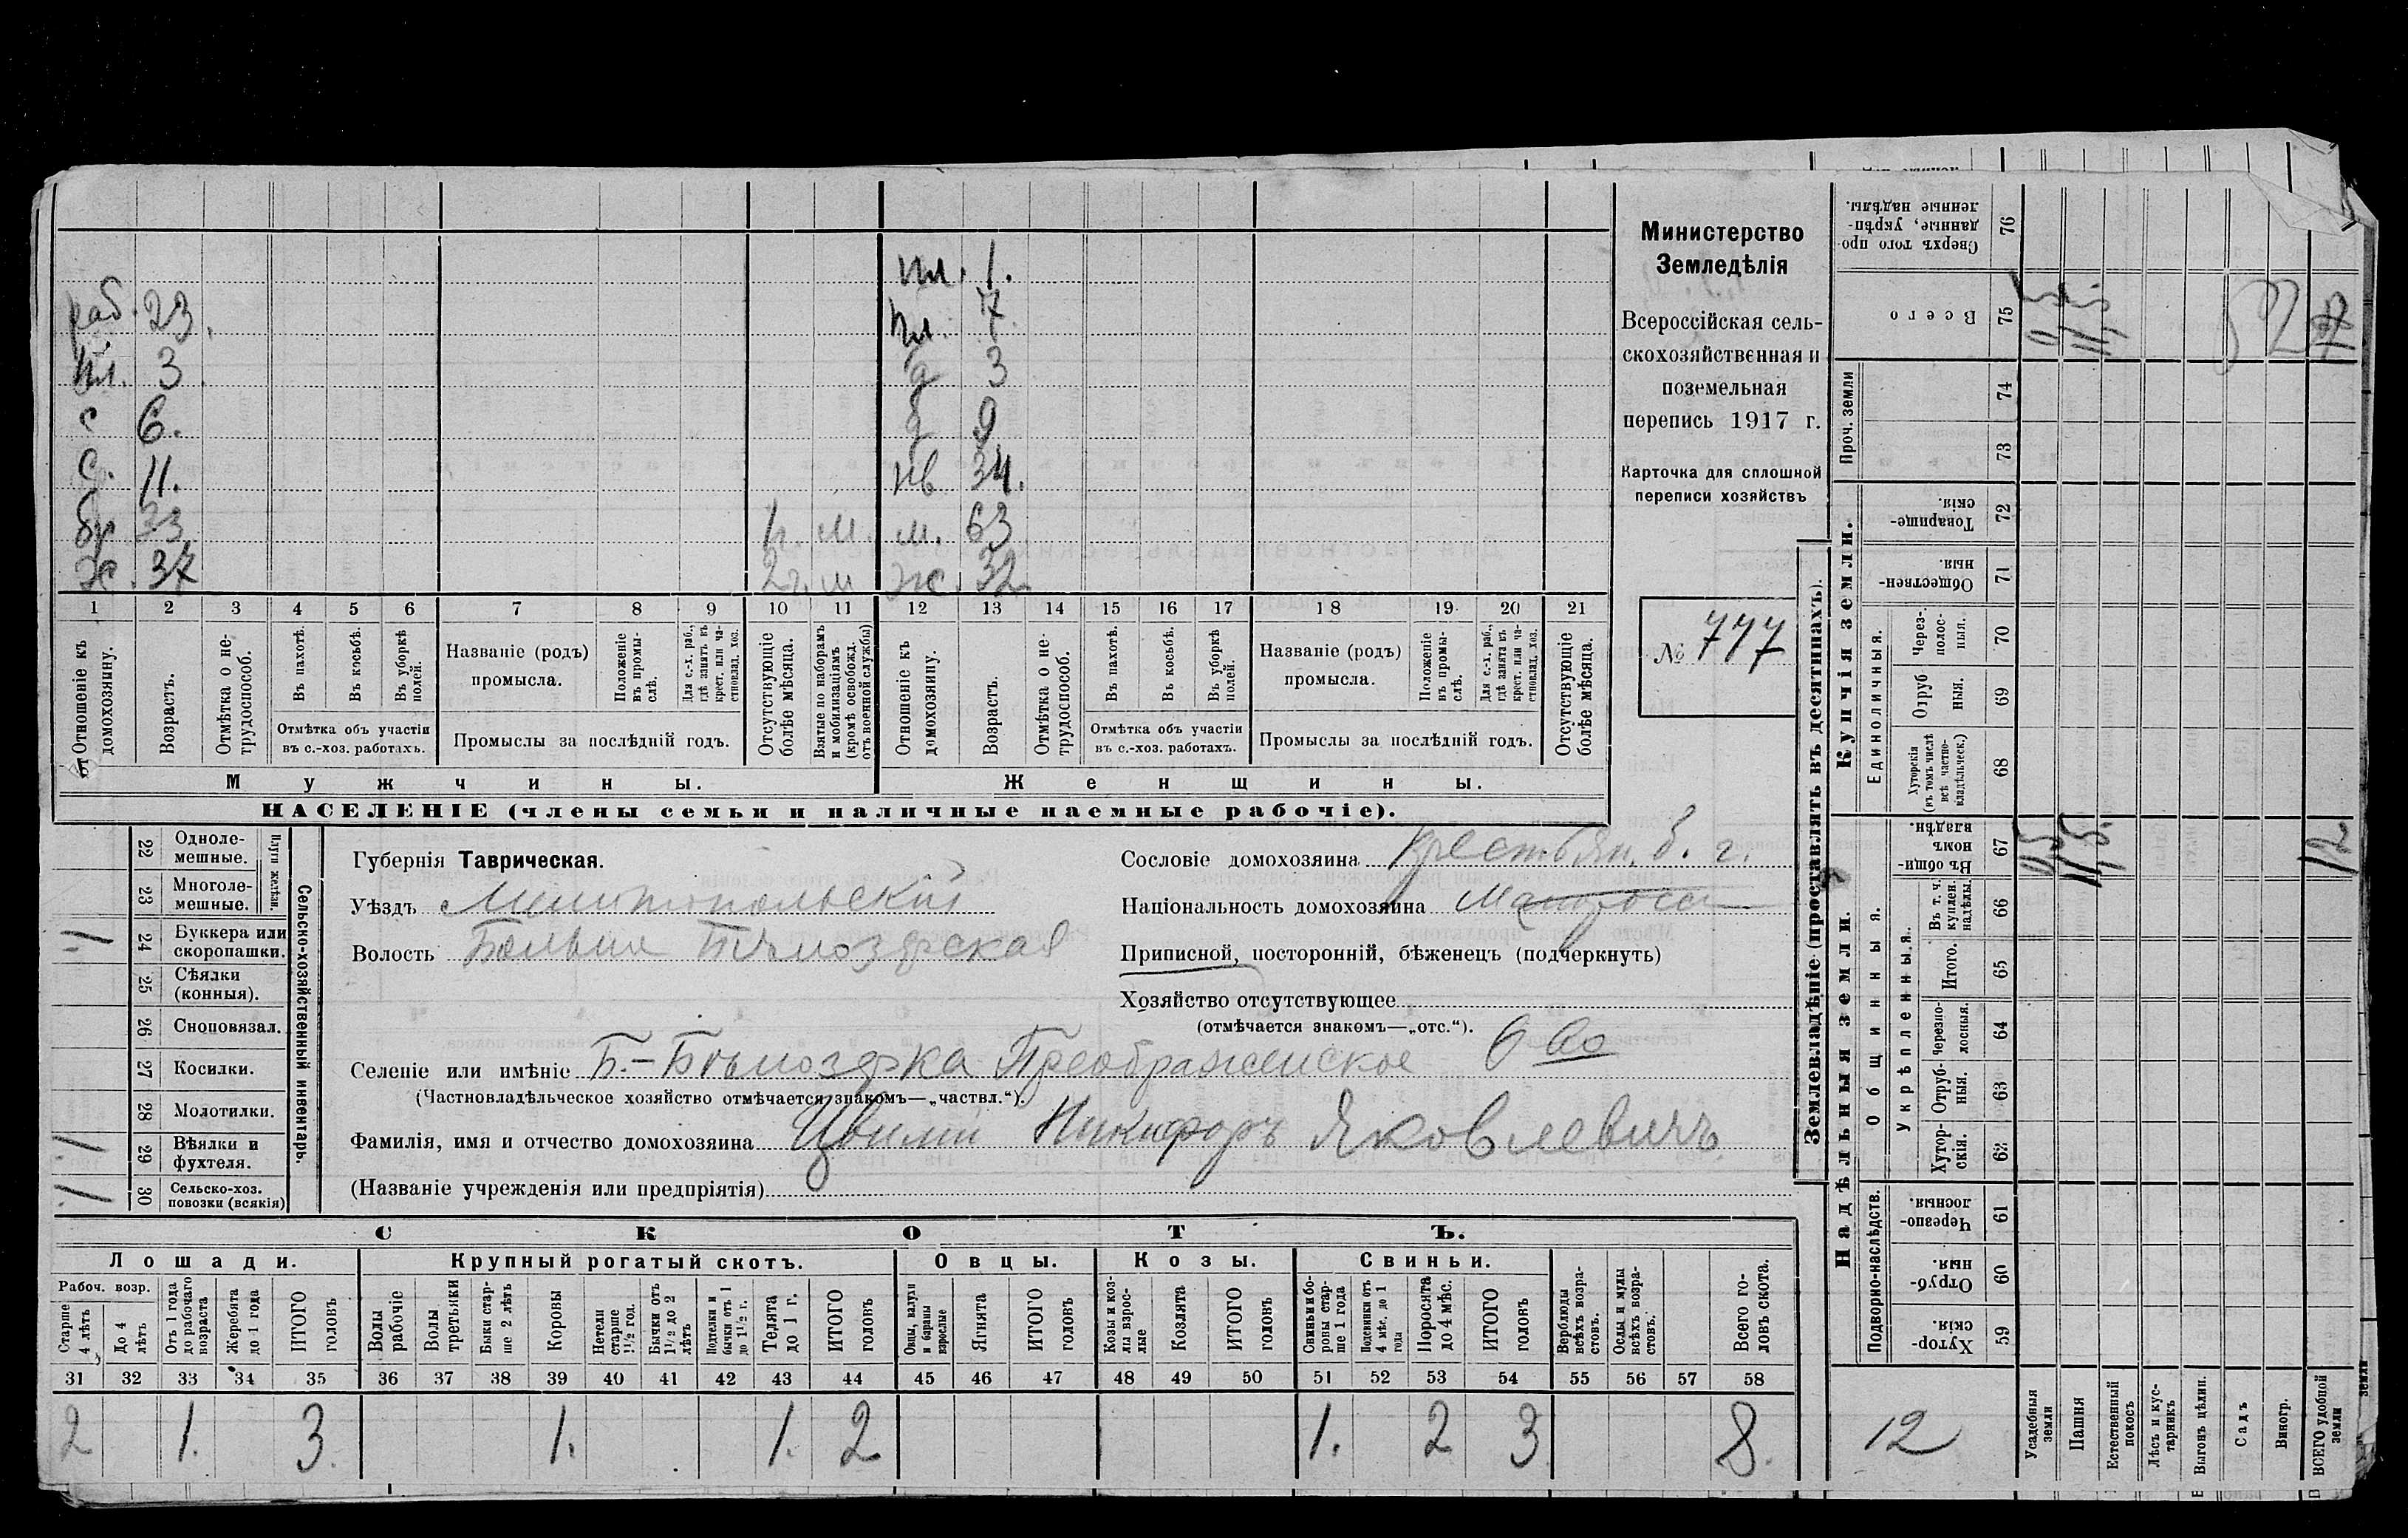 пл. 1.
раб. 23.
пл. 7.
пл. 3.
д 3
с 6.
д 9
с. 11.
нв 34.
бр 33
м. 63
х. 37
2 г. м
ж. 32
1 2 3 4 5 6 7 8 9 10 11 12 13 14 15 16 17 18 19 20 21
Отношеніе къ домохозяину.
Возрастъ.
Отмѣтка о нетрудоспособ.
Въ пахотѣ.
Въ косьбѣ.
Въ уборкѣ полей.
Отмѣтка объ участіи
въ с.-хоз. работахъ.
Названіе (родъ)
промысла.
Положеніе въ промыслѣ.
Для с.-х. раб., гдѣ занятъ въ крест. или частновлад. хоз.
Промыслы за послѣдній годъ.
Отсутствующіе болѣе мѣсяца.
Взятые по наборамъ и мобилизаціямъ (кромѣ освобожд. отъ военной службы)
Отношеніе къ домохозяину.
Возрастъ.
Отмѣтка о нетрудоспособ.
Въ пахотѣ.
Въ косьбѣ.
Въ уборкѣ полей.
Отмѣтка объ участіи
въ с.-хоз. работахъ.
Названіе (родъ)
промысла.
Положеніе въ промыслѣ.
Для с.-х. раб., гдѣ занята въ крест. или частновлад. хоз.
Промыслы за послѣдній годъ.
Отсутствующіе болѣе мѣсяца.
Мужчины.
Женщины.
НАСЕЛЕНІЕ (члены семьи и наличные наемные рабочіе).
Министерство
Земледѣлія
Всероссійская сель-
скохозяйственная и
поземельная
перепись 1917 г.
Карточка для сплошной
переписи хозяйствъ
№ 777
22 Одноле-
мешные.
23 Многоле-
мешные.
Плуги желѣзн.
24 Буккера или
скоропашки. 1
25 Сѣялки
(конныя).
26 Сноповязал.
27 Косилки.
28 Молотилки.
29 Вѣялки и
фухтеля. 1
30 Сельско-хоз.
повозки (всякія) 1
Сельско-хозяйственный инвентарь.
Губернія Таврическая.
Уѣздъ Мелитопольскій
Волость Больше Бѣлозерская
Сословіе домохозяина крестьян. б. г.
Національность домохозяина Малоросс
Приписной, посторонній, бѣженецъ (подчеркнуть)
Хозяйство отсутствующее
(отмѣчается знакомъ—„отс.“).
Селеніе или имѣніе Б.-Бѣлозерка Преображенское
(Частновладѣльческое хозяйство отмѣчается знакомъ—„частвл.“).
Фамилія, имя и отчество домохозяина Цвилій Никифоръ Яковлевичъ.
(Названіе учрежденія или предпріятія)
СКОТЪ.
Лошади. Крупный рогатый скотъ. Овцы. Козы. Свиньи.
Рабоч. возр.
Старше 4 лѣтъ
До 4 лѣтъ
Отъ 1 года до рабочаго возраста
Жеребята до 1 года
ИТОГО головъ
Волы рабочіе
Волы третьяки
Быки старше 2 лѣтъ
Коровы
Нетели старше 1½ год.
Бычки отъ 1½ до 2 лѣтъ
Подтелки и бычки отъ 1 до 1½ г.
Телята до 1 г.
ИТОГО головъ
Овцы, валухи и бараны взрослые
Ягнята
ИТОГО головъ
Козы и козлы взрослые
Козлята
ИТОГО головъ
Свиньи и боровы старше 1 года
Подсвинки отъ 4 мѣс. до 1 года
Поросята до 4 мѣс.
ИТОГО головъ
Верблюды всѣхъ возрастовъ.
Ослы и мулы всѣхъ возрастовъ.
Всего головъ скота.
31 32 33 34 35 36 37 38 39 40 41 42 43 44 45 46 47 48 49 50 51 52 53 54 55 56 57 58
2 1. 3. 1. 1. 2 1. 2 3 8.
Землевладѣніе (проставлять въ десятинахъ).
Сверхъ того проданные, укрѣпленные надѣлы. 76
Всего 75
Проч. земли 74
73
Купчія земли.
Товарищескія. 72
Общественныя. 71
Единоличныя.
Черезполосныя. 70
Отрубныя. 69
Хуторскія (въ томъ числѣ всѣ частновладѣльческ.) 68
Надѣльныя земли.
Общинныя.
Въ общинномъ владѣн. 67 12
Въ т. ч. куплен. надѣлы. 66
Укрѣпленныя.
Итого. 65
Черезполосныя. 64
Отрубныя. 63
Хуторскія. 62
Подворно-наслѣдств.
Черезполосныя. 61
Отрубныя. 60
Хуторскія. 59
12
Усадебныя земли
Пашня
Естественный покосъ
Лѣсъ и кустарникъ
Выгонъ цѣлин.
Садъ
Виногр.
ВСЕГО удобной земли